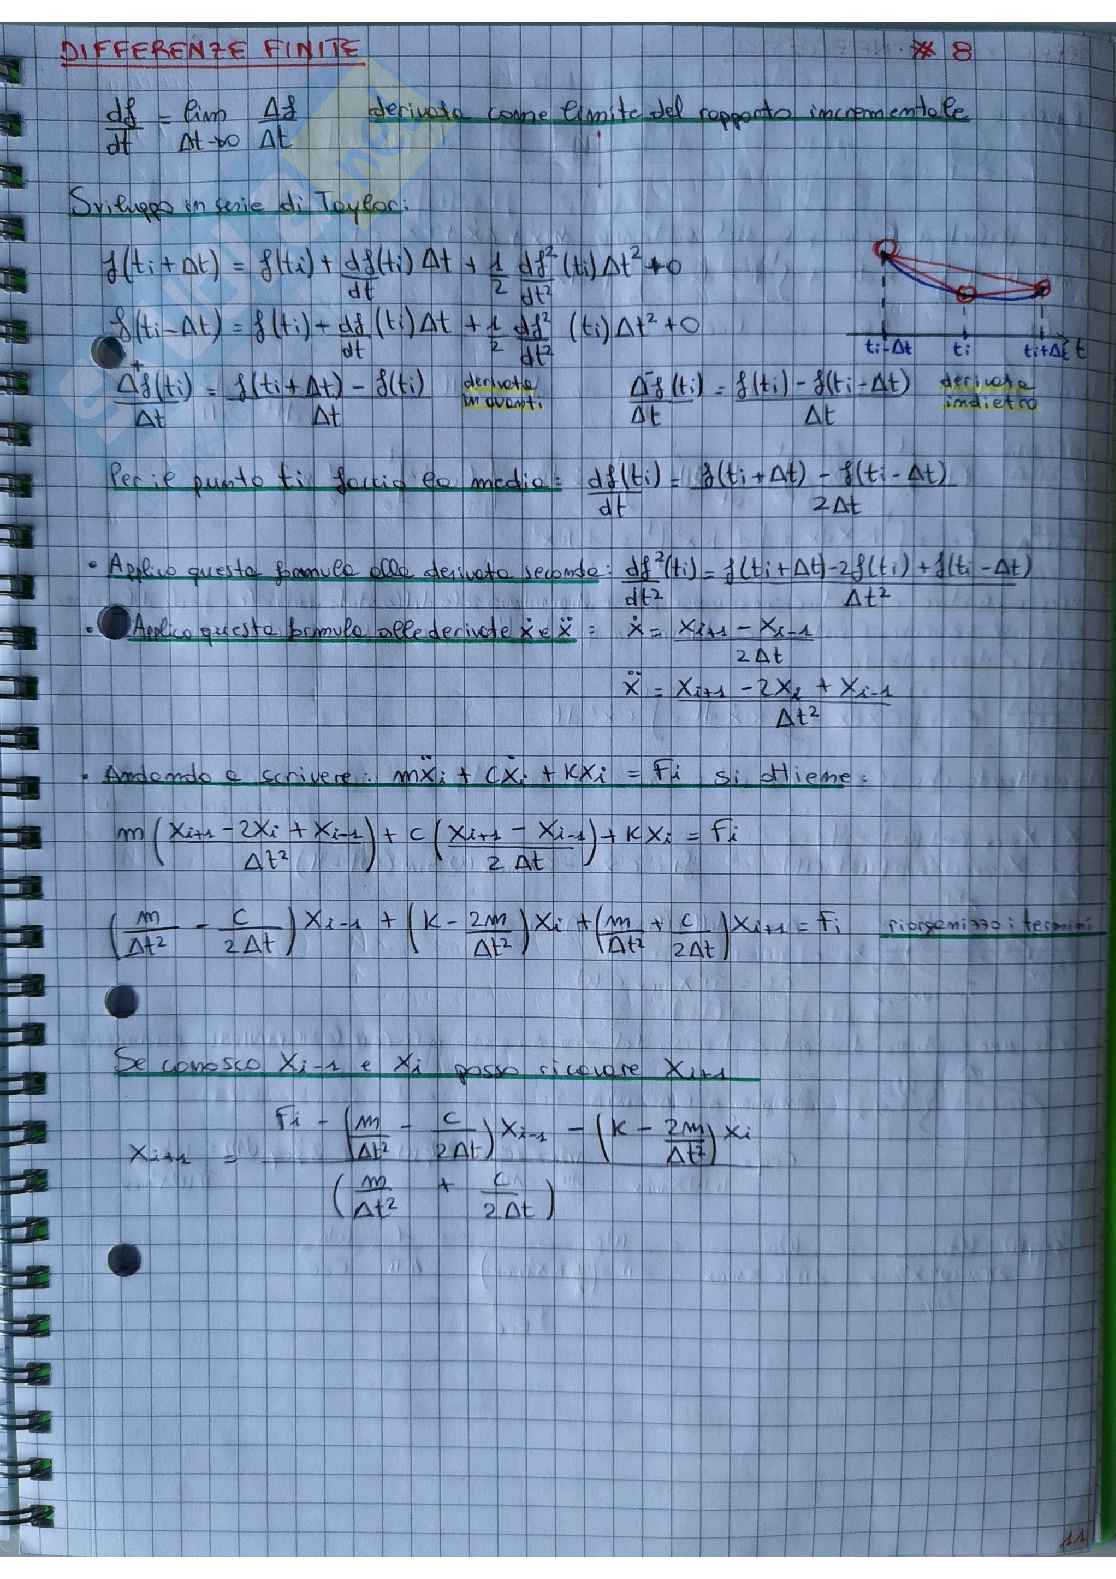 DIFFERENZE FINITE # 8
df/dt = lim Δt→0 Δf/Δt derivata come limite del rapporto incrementale
Sviluppo in serie di Taylor:
f(ti+Δt) = f(ti) + df(ti)/dt Δt + 1/2 df²/dt² (ti) Δt² + 0
f(ti-Δt) = f(ti) - df/dt (ti) Δt + 1/2 df²/dt² (ti) Δt² + 0
ti-Δt ti ti+Δt t
Δ⁺f(ti)/Δt = f(ti+Δt) - f(ti)/Δt derivata in avanti Δ⁻f(ti)/Δt = f(ti) - f(ti-Δt)/Δt derivata indietro
Per il punto ti faccio la media: df(ti)/dt = f(ti+Δt) - f(ti-Δt)/2Δt
• Applico questa formula alla derivata seconda: df²(ti)/dt² = f(ti+Δt)-2f(ti)+f(ti-Δt)/Δt²
• Applico questa formula alle derivate ẋ e ẍ : ẋ = xi+1 - xi-1/2Δt
ẍ = xi+1 - 2xi + xi-1/Δt²
• Andando a scrivere: mẍi + cẋi + kxi = Fi si ottiene:
m(xi+1 - 2xi + xi-1/Δt²) + c(xi+1 - xi-1/2Δt) + kxi = Fi
(m/Δt² - c/2Δt)xi-1 + (k - 2m/Δt²)xi + (m/Δt² + c/2Δt)xi+1 = Fi riorganizzo i termini
Se conosco xi-1 e xi posso ricavare xi+1
xi+1 = Fi - (m/Δt² - c/2Δt)xi-1 - (k - 2m/Δt²)xi / (m/Δt² + c/2Δt)
11